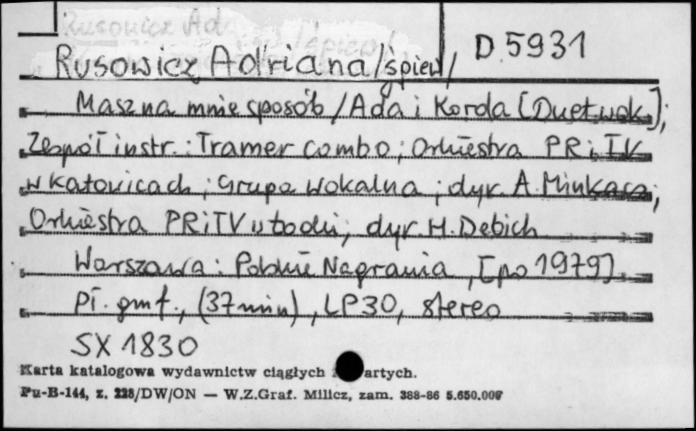 Rusowicz Ad /śpiew/
D 5931
Rusowicz Adriana /śpiew/
Masz na mnie sposób / Ada i Korda [Duet wok.];
Zespół instr.: Tramer combo; Orkiestra PR i TV
w Katowicach; Grupa Wokalna; dyr. A. Minkacz;
Orkiestra PRiTV w Łodzi; dyr H. Debich
Warszawa: Polskie Nagrania, [po 1979].
Pł. gmf., (37 min), LP30, stereo
SX 1830
Karta katalogowa wydawnictw ciągłych i artych.
Pu-B-144, z. 228/DW/ON — W.Z.Graf. Milicz, zam. 388-86 5.650.000